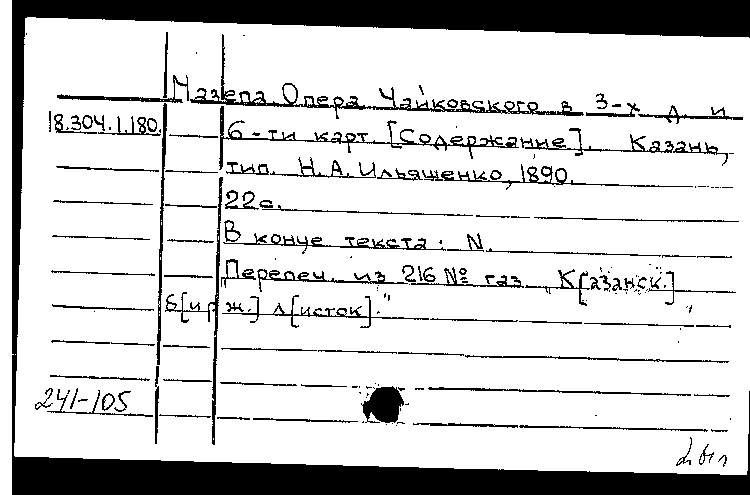 Мазепа. Опера Чайковского в 3-х д. и
18.304.1.180. 6-ти карт. [Содержание]. Казань,
тип. Н. А. Ильяшенко, 1890.
22с.
В конце текста: N.
"Перепеч. из 216 № газ. "К[азанск.]
б[ирж.] л[исток]."
241-105